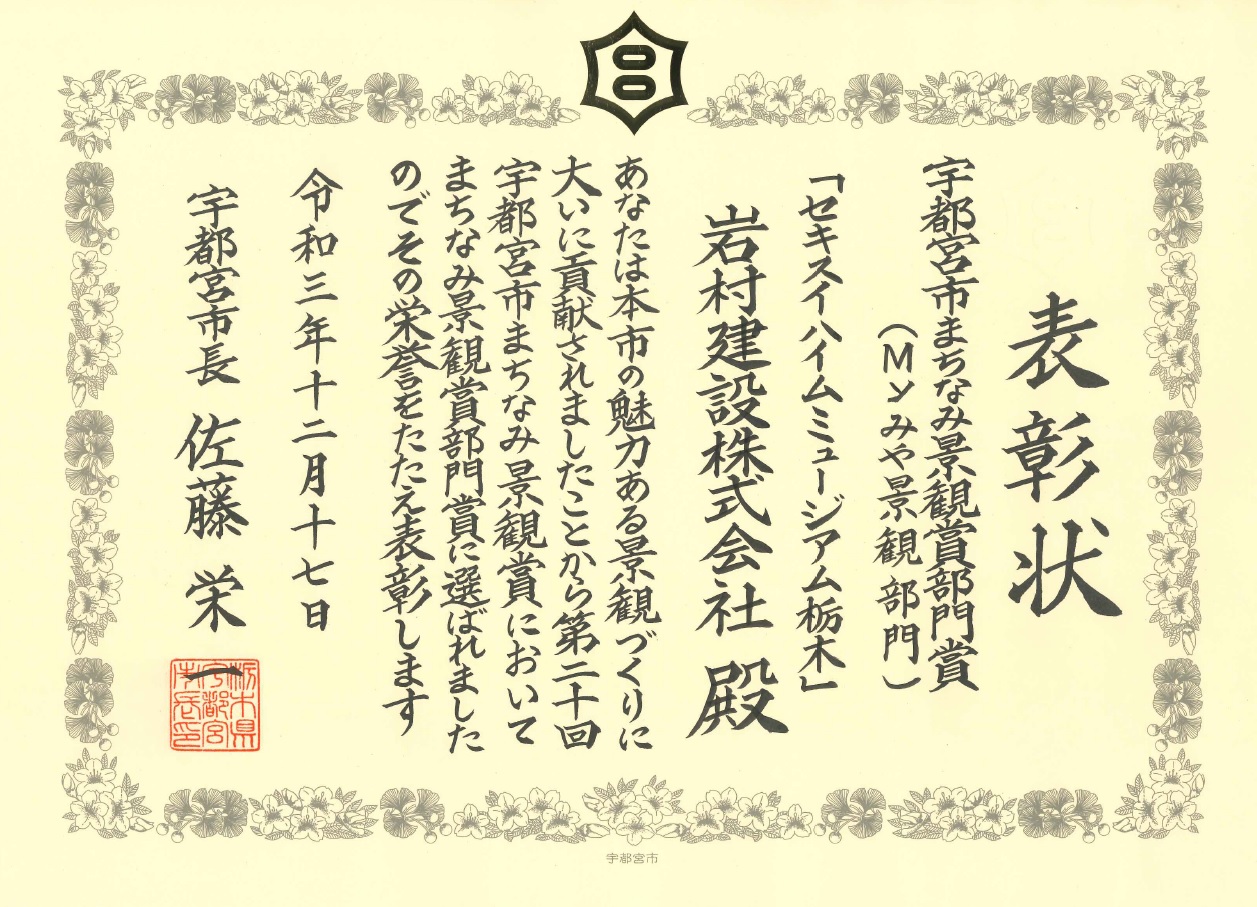 表彰状
宇都宮市まちなみ景観賞部門賞
（Myみや景観部門）
「セキスイハイムミュージアム栃木」
岩村建設株式会社 殿
あなたは本市の魅力ある景観づくりに
大いに貢献されましたことから第二十回
宇都宮市まちなみ景観賞において
まちなみ景観賞部門賞に選ばれました
のでその栄誉をたたえ表彰します
令和三年十二月十七日
宇都宮市長 佐藤栄一
栃木県
宇都宮
市長印
宇都宮市